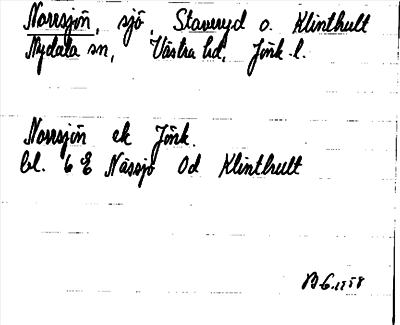 Norrsjön, sjö, Stavseryd o. Klinthult
Nydala sn, Västra hd, Jönk. l.
Norrsjön ek Jönk.
bl. 6 E Nässjö Od Klinthult